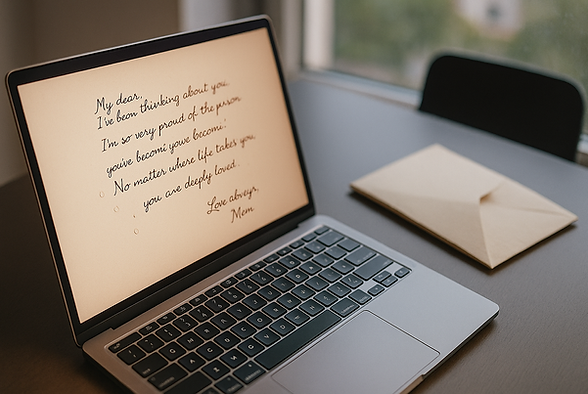 My dear,
I've been thinking about you.
I'm so very proud of the person
you've becomi youve becomi!
No matter where life takes you,
you are deeply loved.
Love abveys,
Mem